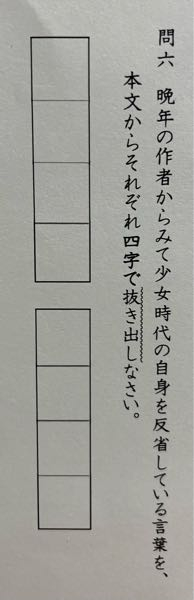 問六　晩年の作者からみて少女時代の自身を反省している言葉を、
本文からそれぞれ四字で抜き出しなさい。